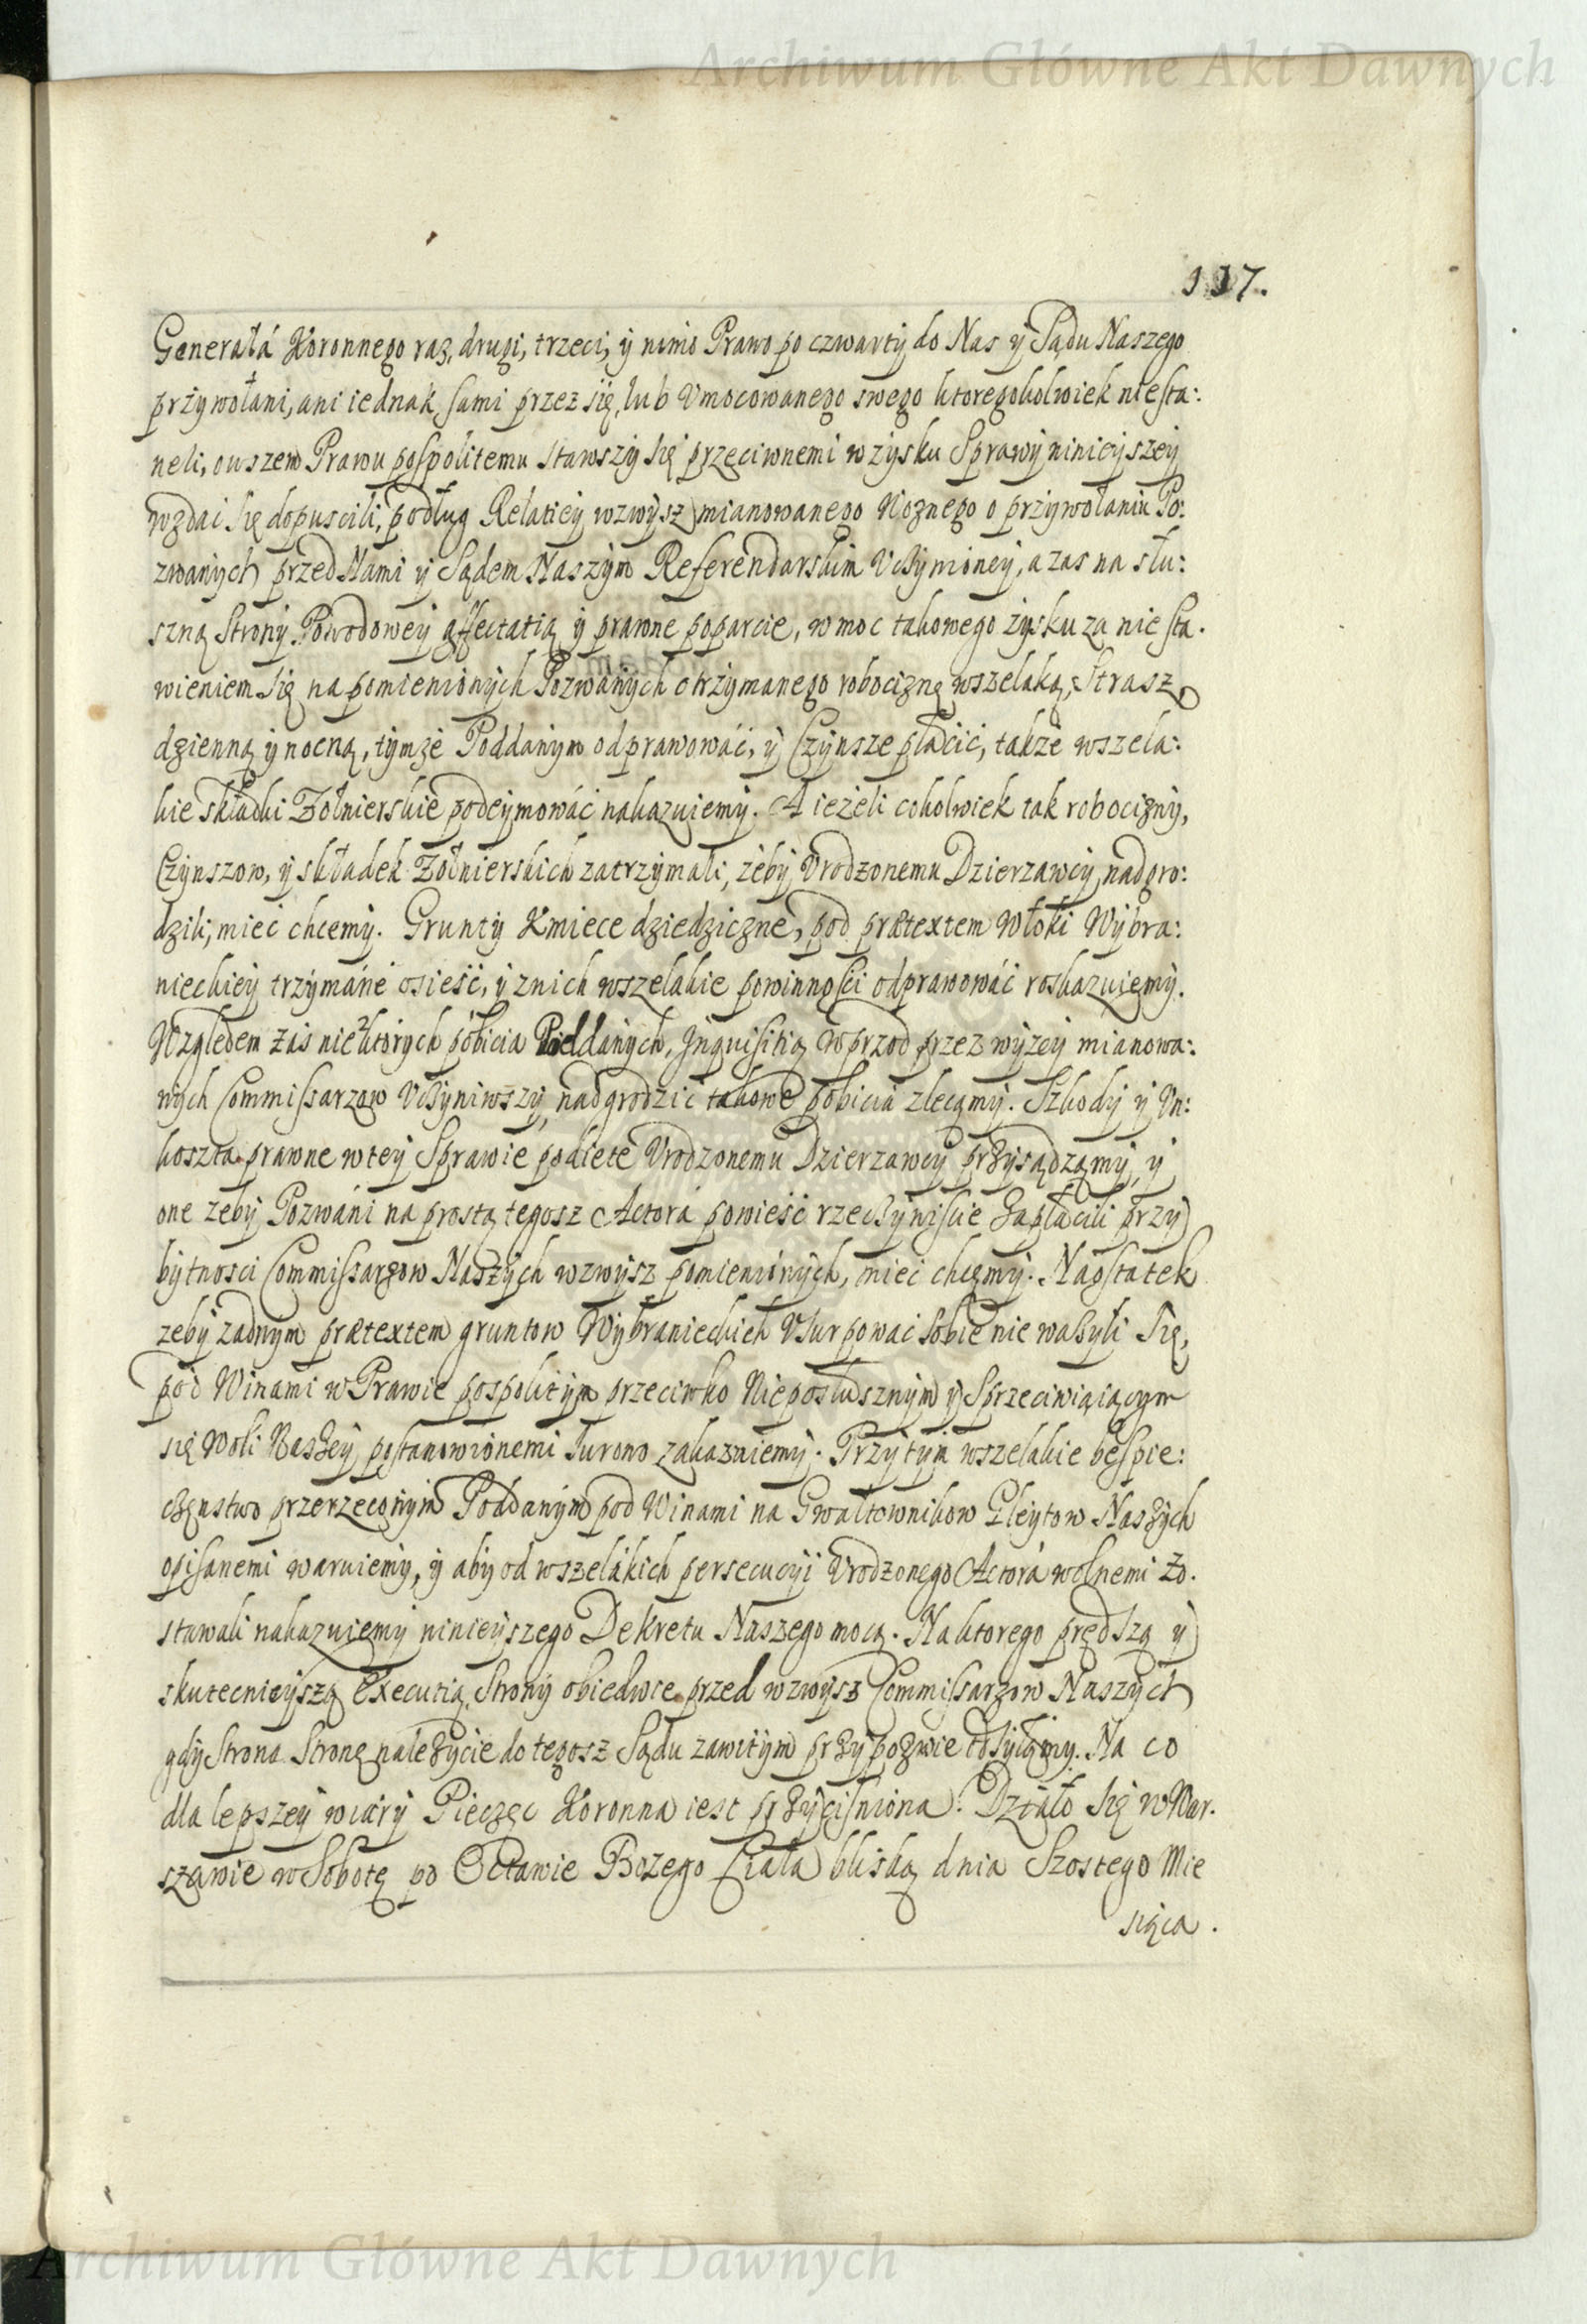 Archiwum Główne Akt Dawnych
117.
Generałá Koronnego raz, drugi, trzeci, ÿ mimo Prawo po czwartÿ do Nas ÿ Sądu Naszego
przÿwołani, ani iednak sami przez się, lub Vmocowanego swego ktoregokolwiek niesta:
neli, owszem Prawu pospolitemu stawszÿ się przeciwnemi wzÿsku Sprawÿ ninieÿszeÿ
wzdai się dopuscili, podług Relatieÿ wzwÿsz mianowanego Woznego o przÿwołaniu Po:
zwanÿch przed Nami ÿ Sądem Naszÿm Referendarskim Vczÿnioneÿ, a zas na słu:
szną Stronÿ Powodoweÿ affectatią ÿ prawne poparcie, w moc takowego zÿsku za nie sta.
wieniem się na pomienionÿch Pozwanÿch otrzÿmanego robociznę wszelaką, Strasz
dzienną ÿ nocną, tÿmze Poddanÿm odprawowáć, ÿ Czÿnsze płacić, takze wszela:
kie składki Zołnierskie podeÿmowáć nakazuiemÿ. A ieżeli cokolwiek tak robociznÿ,
Czÿnszow, ÿ składek Zołnierskich zatrzÿmali, żebÿ Vrodzonemu Dzierzawcÿ nadgro:
dzili, mieć chcemÿ. Gruntÿ Kmiece dziedziczne, pod prætextem Włoki Wÿbra:
nieckieÿ trzÿmáne osieść, ÿ znich wszelakie powinnosci odprawowáć roskazuiemÿ.
Względem zas niektorÿch pobicia Poddanÿch, Inquisitią wprzod przez wÿzeÿ mianowa:
nÿch Commissarzow Vczÿniwszÿ nadgrodzić takowe pobicia zlecamÿ. Szkodÿ ÿ Vn:
koszta prawne wteÿ Sprawie podięte Vrodzonemu Dzierzawcÿ przÿsądzamÿ, ÿ
one zebÿ Pozwáni na prostą tegosz Actorá powieść rzeczÿwiscie zapłacili przÿ
bÿtnosci Commissarzow Naszÿch wzwÿsz pomienionÿch, mieć chcemÿ. Naostatek
zebÿ zadnym prætextem gruntow Wÿbranieckich Vsurpowac sobie nie wazÿli się,
pod Winami w Prawie pospolitÿm przeciwko Nieposłusznÿm ÿ Sprzeciwiaiącym
się Woli Naszeÿ postanowionemi surowo zakazuiemÿ. Przÿtÿm wszelakie bespie:
czenstwo przerzeconÿm Poddanÿm pod Winami na Gwałtownikow Gleÿtow Naszÿch
opisanemi waruiemÿ, ÿ abÿ od wszelákich persecucÿi Vrodzonego Actorá wolnemi zo.
stawali nakazuiemÿ ninieÿszego Dekretu Naszego mocą. Na ktorego prędszą ÿ
skutecnieÿszą Executią, Stronÿ obiedwie przed wzwÿsz Commissarzow Naszÿch
gdÿ Strona Stronę należÿcie do tegosz Sądu zawitÿm przÿpozwie odsÿłamÿ. Na co
dla lepszeÿ wiárÿ Pieczęc Koronna iest przÿcisniona. Działo się w War.
szawie w Sobotę po Octawie Bozego Ciała bliską dnia Szostego Mie
siąca.
Archiwum Główne Akt Dawnych